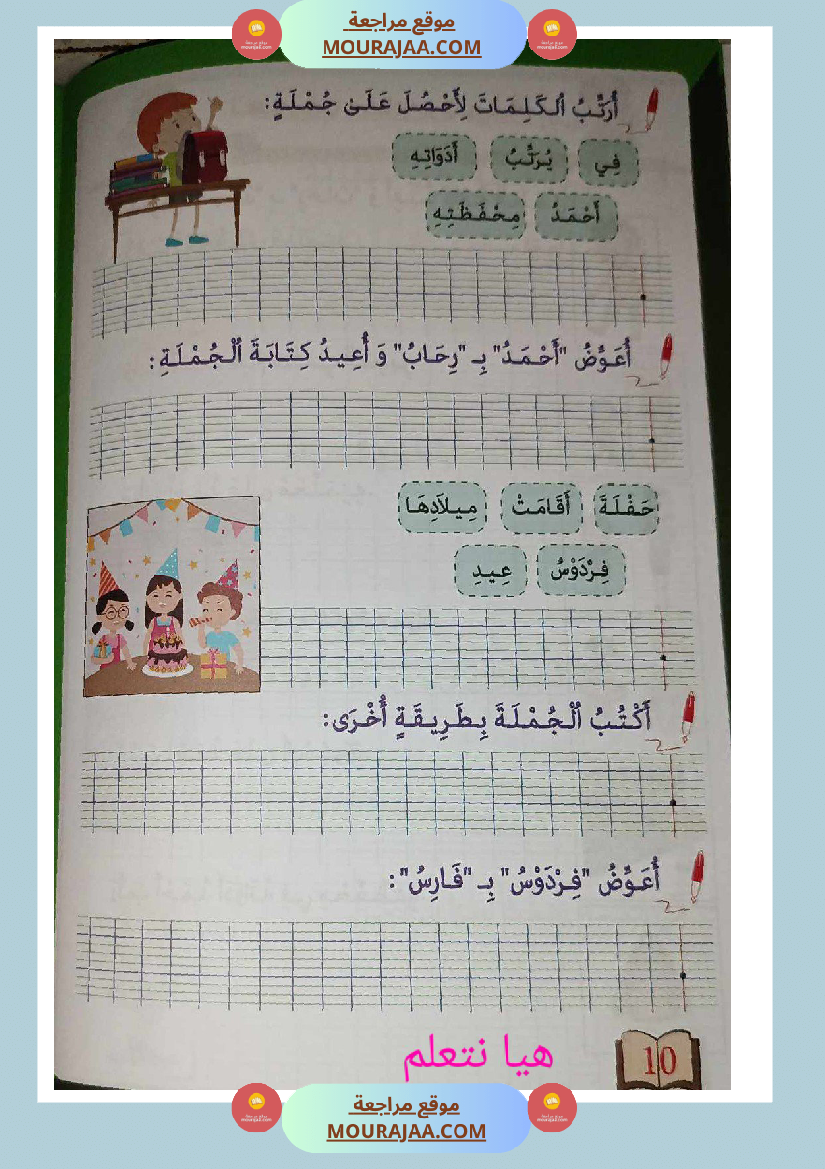 موقع مراجعة
MOURAJAA.COM
أُرَتِّبُ ٱلْكَلِمَاتَ لِأَحْصُلَ عَلَىٰ جُمْلَةٍ:
فِي يُرَتِّبُ أَدَوَاتِهِ
أَحْمَدُ مِحْفَظَتِهِ
أُعَوِّضُ "أَحْمَدُ" بِـ "رِحَابُ" وَ أُعِيدُ كِتَابَةَ ٱلْجُمْلَةِ:
حَفْلَةَ أَقَامَتْ مِيلاَدِهَا
فِرْدَوْسُ عِيدِ
أَكْتُبُ ٱلْجُمْلَةَ بِطَرِيقَةٍ أُخْرَى:
أُعَوِّضُ "فِرْدَوْسُ" بِـ "فَارِسُ":
هيا نتعلم
10
موقع مراجعة
MOURAJAA.COM